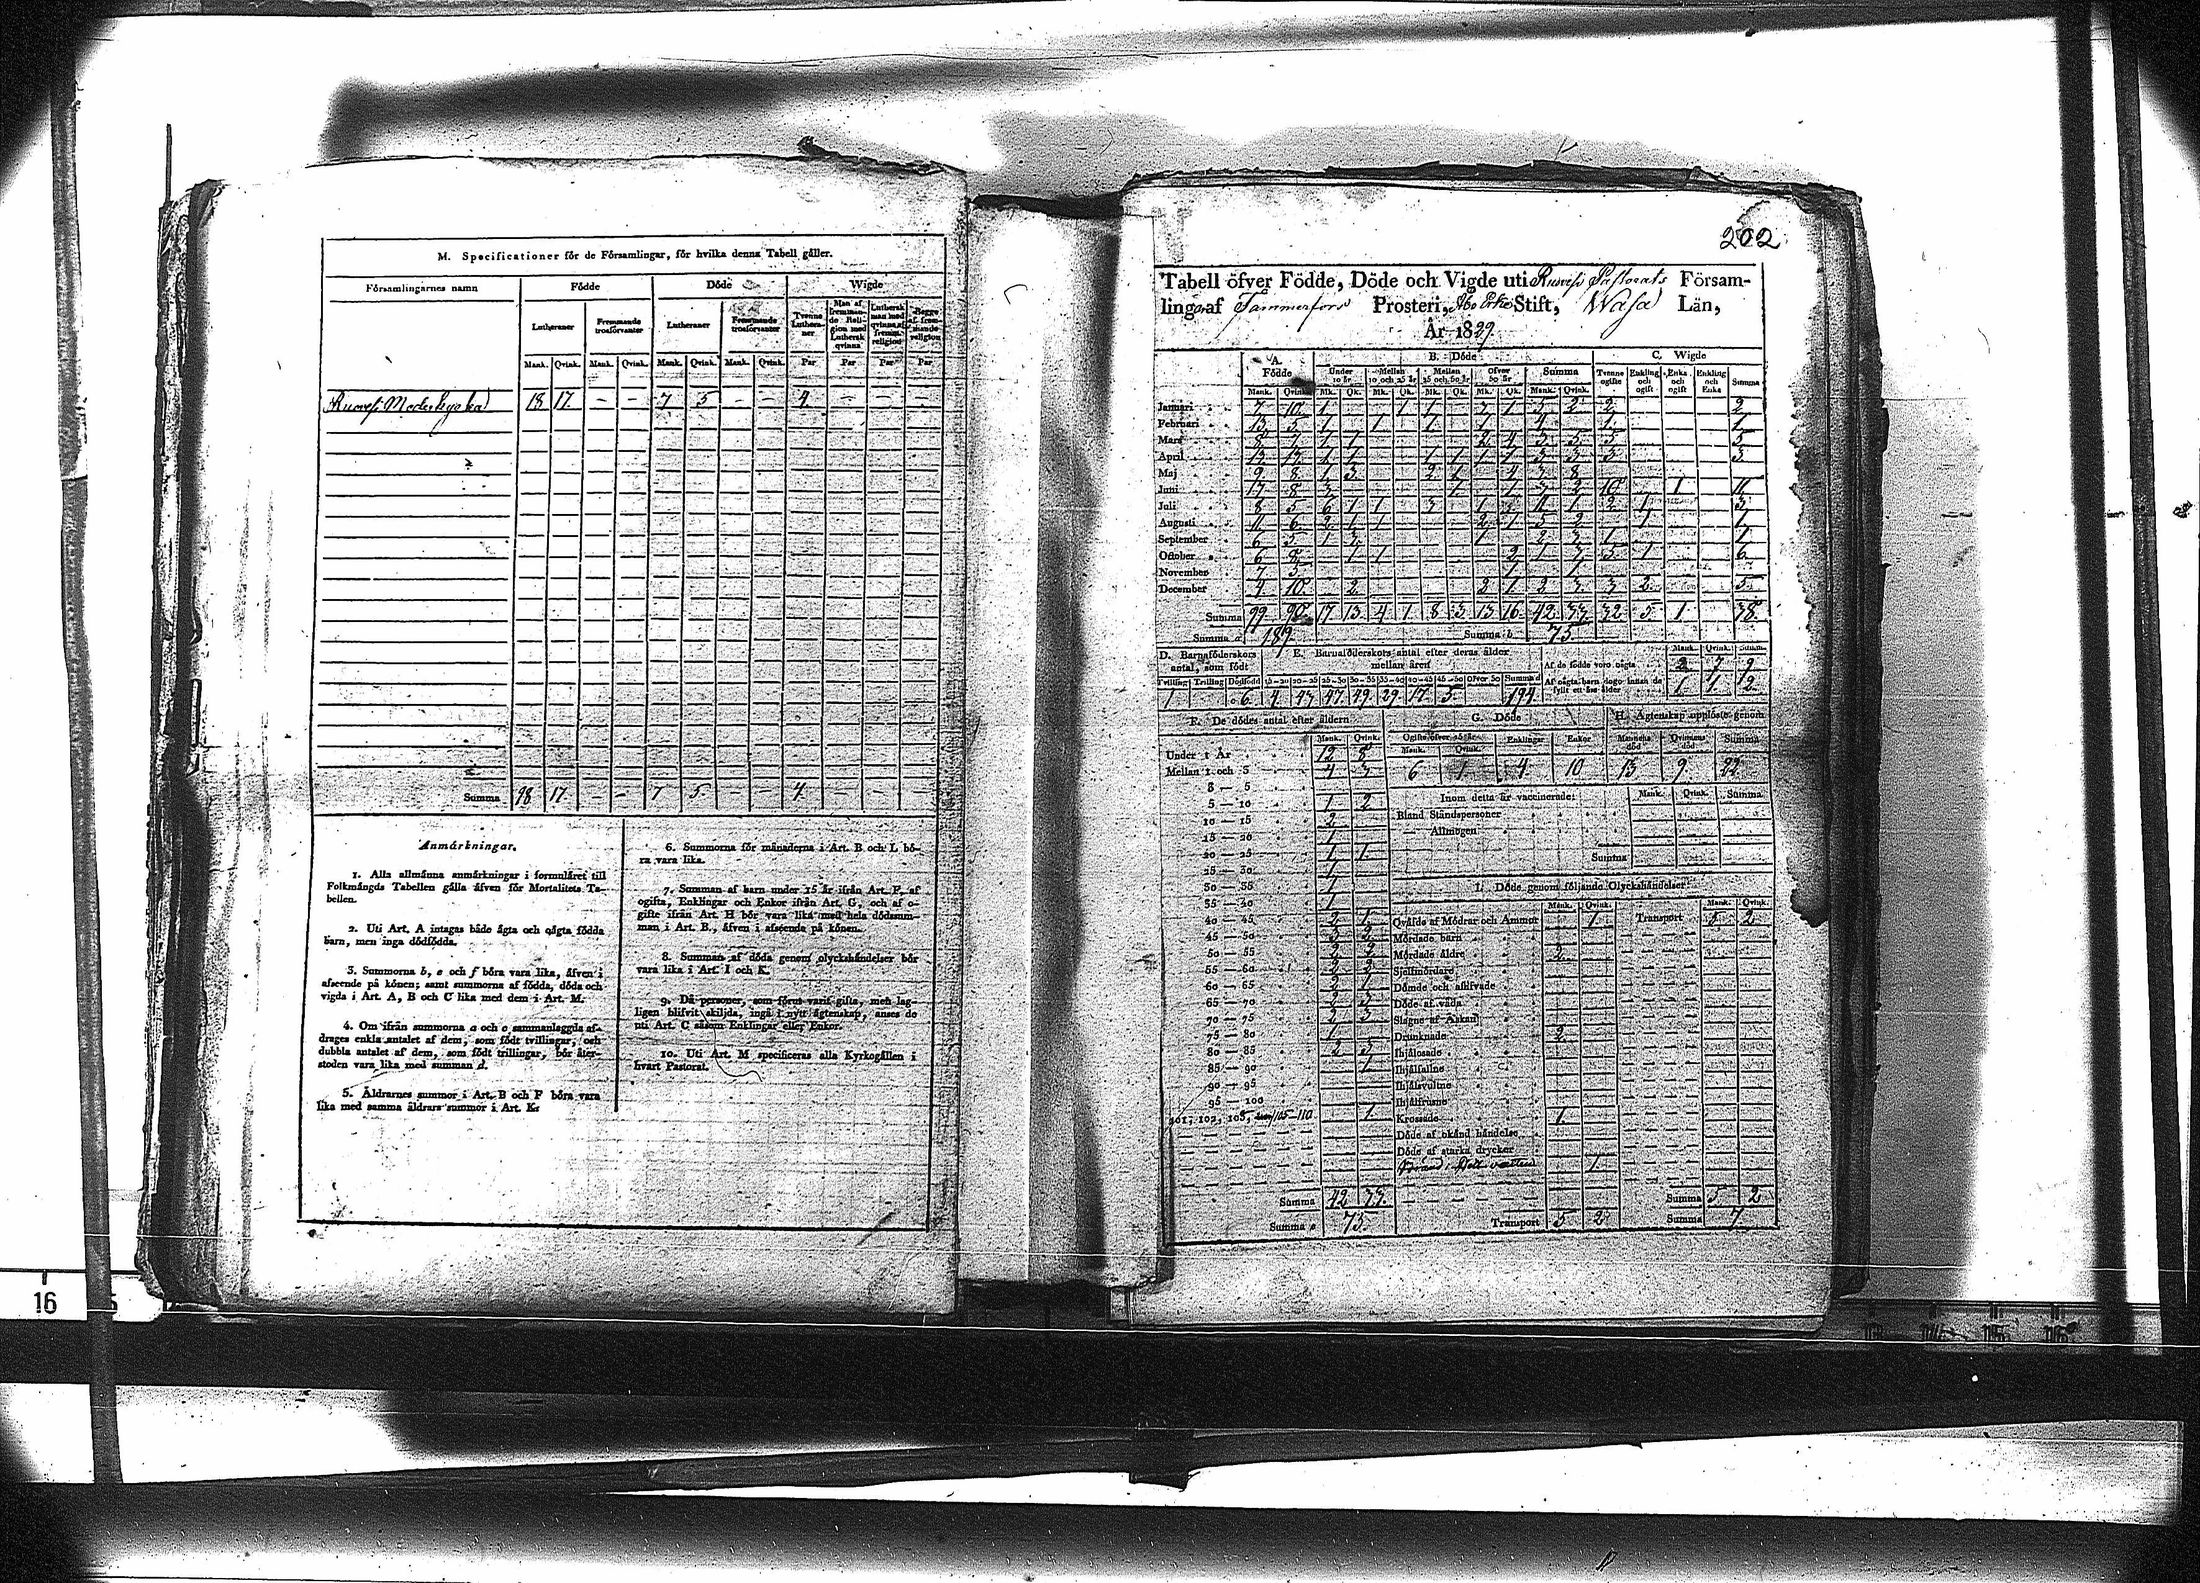 M. Specificationer för de Församlingar, för hvilka denna Tabell gäller.
Församlingarnes namn Födde Döde Vigde
Lutheraner Fremmande trosförvanter Lutheraner Fremmande trosförvanter Tvenne Lutheraner Man af fremmande Religion med Luthersk qvinna Luthersk man med qvinna af fremm. religion Begge af fremmande religion
Mank. Qvink. Mank. Qvink. Mank. Qvink. Mank. Qvink. Par Par Par Par
18 17 – – 7 5 – – 4 – – –
Summa 17 – – 7 5 – – 4 – – –
Anmärkningar.
1. Alla allmänna anmärkningar i formuläret till
Folkmängds Tabellen gälla äfven för Mortalitets Ta-
bellen.
2. Uti Art. A intagas både ägta och oägta födda
barn, men inga dödfödda.
3. Summorna b, e och f böra vara lika, äfven i
afseende på könen; samt summorna af födda, döda och
vigda i Art. A, B och C lika med dem i Art. M.
4. Om ifrån summorna a och c sammanlaggda af-
drages enkla antalet af dem, som födt tvillingar, och
dubbla antalet af dem, som födt trillingar, bör åter-
stoden vara lika med summan d.
5. Åldrarnes summor i Art. B och F böra vara
lika med samma åldrars summor i Art. K.
6. Summorna för månaderna i Art. B och L bö-
ra vara lika.
7. Summan af barn under 15 år ifrån Art. F. af
ogifta, Enklingar och Enkor ifrån Art. G, och af o-
gifte ifrån Art. H bör vara lika med hela dödssum-
man i Art. B., äfven i afseende på könen.
8. Summan af döda genom olyckshändelser bör
vara lika i Art. I och K.
9. Då personer, som förut varit gifta, men lag-
ligen blifvit skiljda, ingå i nytt ägtenskap, anses de
uti Art. C såsom Enklingar eller Enkor.
10. Uti Art. M specificeras alla Kyrkogällen i
hvart Pastorat.
202
Tabell öfver Födde, Döde och Vigde uti Ruovesi Pastorats Försam-
lingar af Tammerfors Prosteri, Åbo Erke Stift, Wasa Län,
År 1829.
A. Födde B. Döde C. Wigde
Under 10 år Mellan 10 och 25 år Mellan 25 och 50 år Öfver 50 år Summa Tvenne ogifte Enkling och ogift Enka och ogift Enkling och Enka Summa
Mank. Qvink. Mk. Qk. Mk. Qk. Mk. Qk. Mk. Qk. Mank. Qvink.
Januari 7 10 1 1 1 3 1 5 2 2 2
Februari 13 5 1 1 1 1 4 1 1
Mars 8 7 1 1 2 4 3 5 5 5
April 13 17 1 1 1 1 1 1 3 3 3 3
Maj 9 8 1 3 2 1 4 3 8
Juni 17 8 3 1 1 3 2 10 1 11
Juli 8 5 6 1 1 3 1 11 1 2 1 3
Augusti 11 6 2 1 1 2 1 5 2 1 1
September 6 5 1 3 1 2 3 1 1
October 6 8 1 1 2 1 3 5 1 6
November 7 5 1 1
December 4 10 2 2 1 2 3 3 2 5
Summa 99 90 17 13 4 1 8 3 13 16 42 33 32 5 1 38
Summa a 189 Summa b 75
D. Barnaföderskors antal, som födt E. Barnaföderskors antal efter deras ålder mellan åren
Mank. Qvink. Summ.
Af de födde voro oägta 2 7 9
Tvilling Trilling Dödfödd 15–20 20–25 25–30 30–35 35–40 40–45 45–50 Öfver 50 Summa d
Af oägta barn dogo innan de fyllt ett års ålder 1 1 2
1 6 4 43 47 49 29 17 5 194
F. De dödes antal efter åldern G. Döde H. Ägtenskap upplöste genom
Mank. Qvink. Ogifte öfver 15 år Mank. Qvink. Enklingar Enkor Mannens död Qvinnans död Summa
Under 1 År 12 8
Mellan 1 och 3 4 3 6 1 4 10 13 9 22
3 — 5
5 — 10 1 2 Inom detta år vaccinerade: Mank. Qvink. Summa
10 — 15 2 Bland Ståndspersoner
15 — 20 1 — Allmogen
20 — 25 1 1 Summa
25 — 30 1
30 — 35 1 I. Döde genom följande Olyckshändelser
35 — 40 1 Mank. Qvink. Mank. Qvink.
40 — 45 2 1 Qväfde af Mödrar och Ammor 1 Transport 5 2
45 — 50 3 2 Mördade barn
50 — 55 2 2 Mördade äldre 2
55 — 60 2 2 Sjelfmördare
60 — 65 2 1 Dömde och aflifvade
65 — 70 2 3 Döde af våda
70 — 75 2 3 Slagne af Åskan
75 — 80 1 Drunknade 2
80 — 85 2 5 Ihjälosade
85 — 90 1 Ihjälfallne
90 — 95 Ihjälsvultne
95 — 100 Ihjälfrusne
101, 102, 103, 105–110 1 Krossade 1
Döde af okänd händelse
Döde af starka drycker
1
Summa 42 33 Summa 5 2
Summa e 75 Transport 5 2 Summa 7
16
13 14 15 16